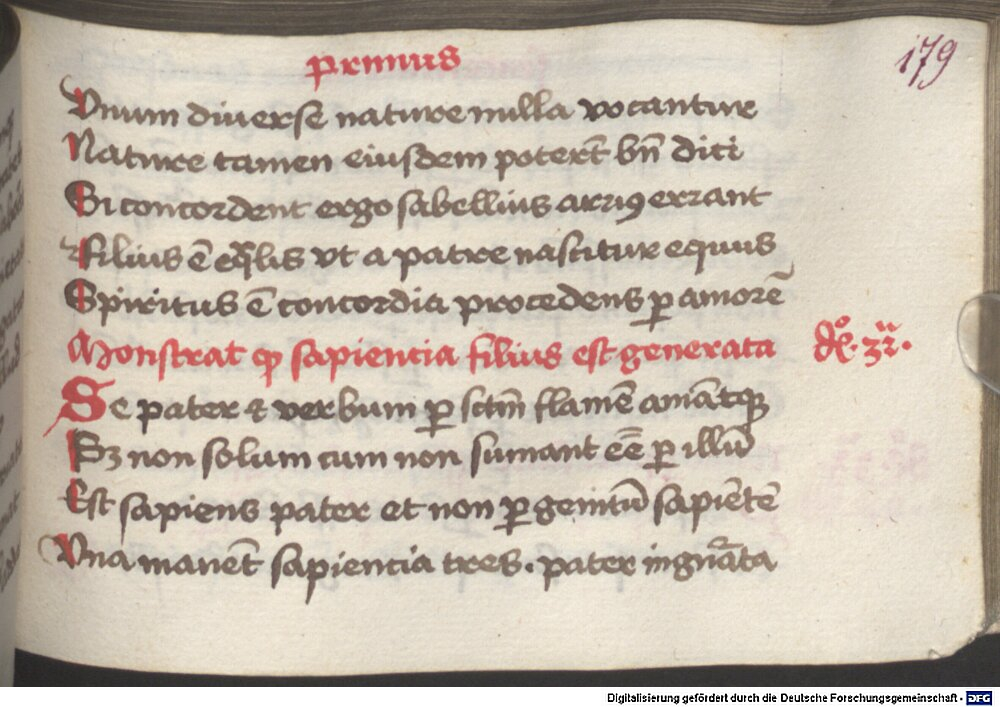 primus
179
Vnum diuerse nature nulla vocanture
Nature tamen eiusdem poterēt bn̄ dici
Si concordent ergo sabellius arriꝯ errant
Filius ē eq̄lis vt a patre nascitur equus
Spiritus ē concordia procedens ꝑ amorē
Monstrat ꝙ sapientia filius est generata
Se pater & verbum ꝑ sctm̄ flamē amātqꝫ
Sꝫ non solum cum non sumant eē̄ ꝑ illū
Est sapiens pater et non ꝑ genitū sapiētē
Vna manēt sapientia tres. pater ingnāta
Digitalisierung gefördert durch die Deutsche Forschungsgemeinschaft - DFG